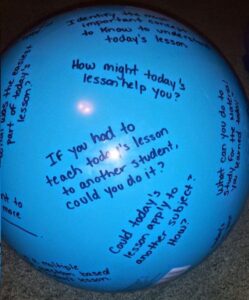 Identify the most
important
to know to understand
today's lesson
How might today's
lesson help you?
What was the easiest
part of today's
lesson?
What can you do to
study for the
If you had to
teach today's lesson
to another student,
could you do it?
Could today's
lesson apply to
another subject?
How?
more
multiple
based